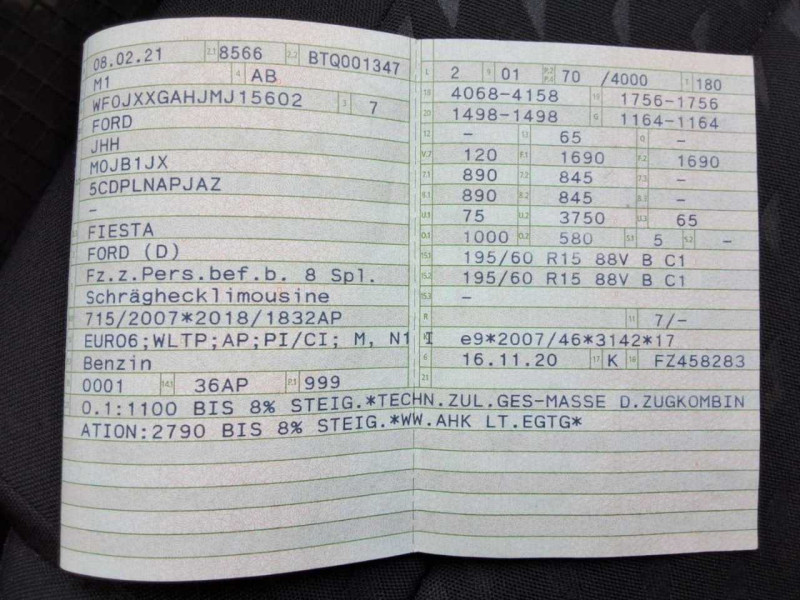 08.02.21 2.1 8566 2.2 BTQ001347
M1 4 AB
WF0JXXGAHJMJ15602 3 7
FORD
JHH
M0JB1JX
5CDPLNAPJAZ
–
FIESTA
FORD (D)
Fz.z.Pers.bef.b. 8 Spl.
Schräghecklimousine
715/2007*2018/1832AP
EURO6;WLTP;AP;PI/CI; M, N1 I
Benzin
0001 14.1 36AP P.1 999
L 2 9 01 P.2 P.4 70 /4000 T 180
18 4068-4158 19 1756-1756
20 1498-1498 G 1164-1164
12 – 13 65 Q –
V.7 120 F.1 1690 F.2 1690
7.1 890 7.2 845 7.3 –
8.1 890 8.2 845 8.3 –
U.1 75 U.2 3750 U.3 65
O.1 1000 O.2 580 S.1 5 S.2 –
15.1 195/60 R15 88V B C1
15.2 195/60 R15 88V B C1
15.3 –
R 11 7/–
K e9*2007/46*3142*17
6 16.11.20 17 K 16 FZ458283
21
O.1:1100 BIS 8% STEIG.*TECHN.ZUL.GES-MASSE D.ZUGKOMBIN
ATION:2790 BIS 8% STEIG.*WW.AHK LT.EGTG*